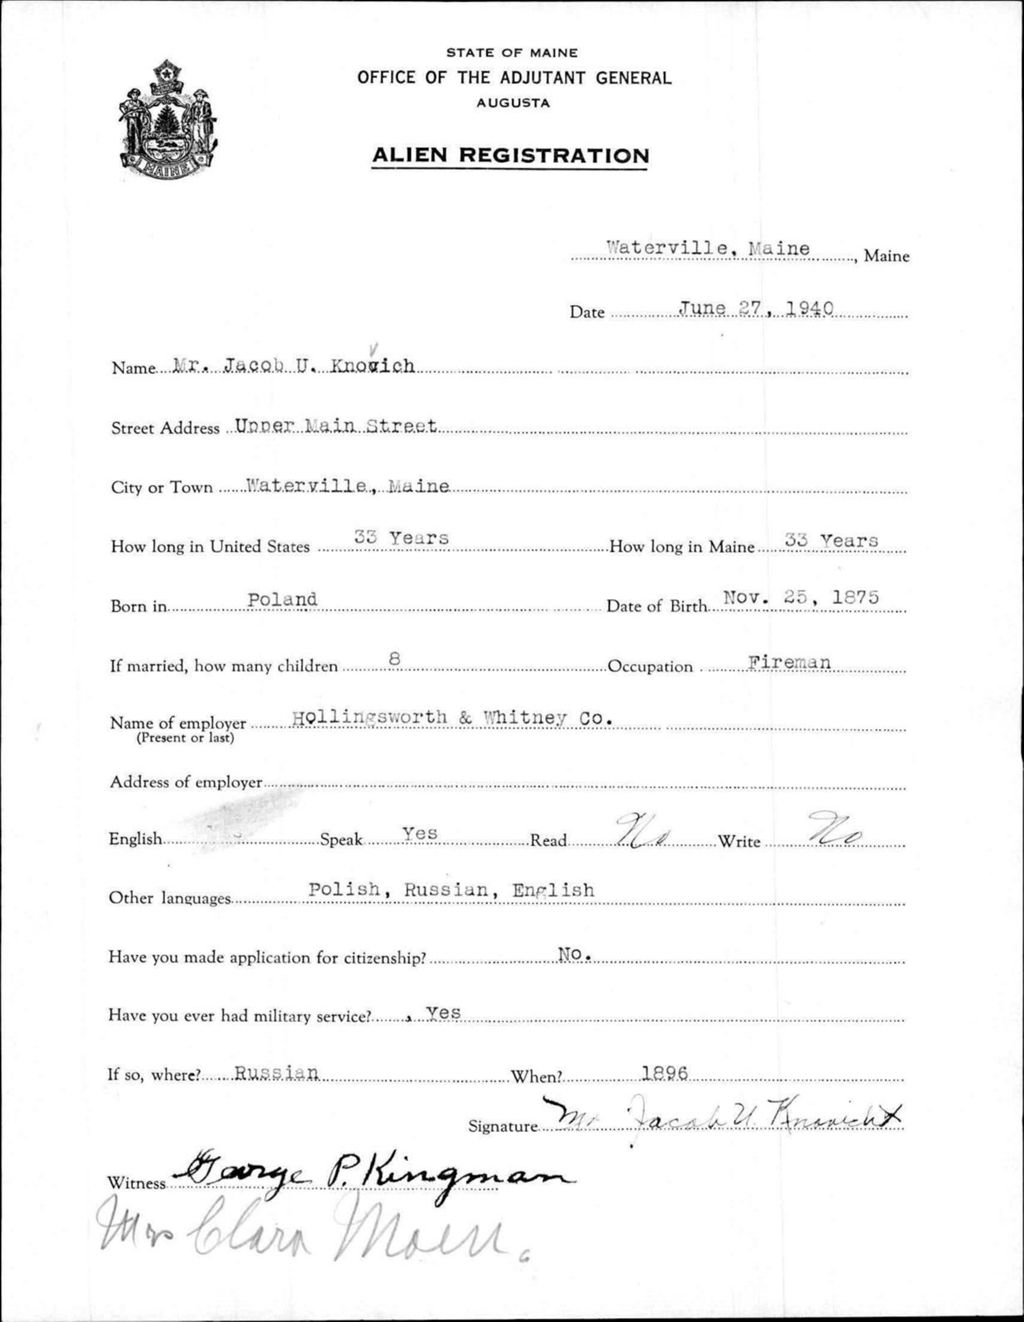 STATE OF MAINE
OFFICE OF THE ADJUTANT GENERAL
AUGUSTA
ALIEN REGISTRATION
MAINE
Waterville, Maine, Maine
Date June 27, 1940
Name Mr. Jacob U. Knovich
Street Address Upper Main Street
City or Town Waterville, Maine
How long in United States 33 Years How long in Maine 33 Years
Born in Poland Date of Birth Nov. 25, 1875
If married, how many children 8 Occupation Fireman
Name of employer Hollingsworth & Whitney Co.
(Present or last)
Address of employer
English Speak Yes Read No Write No
Other languages Polish, Russian, English
Have you made application for citizenship? No.
Have you ever had military service? Yes
If so, where? Russian When? 1896
Signature Mr Jacob U Knovich X
Witness George P. Kingman
Mrs Clara Moen.